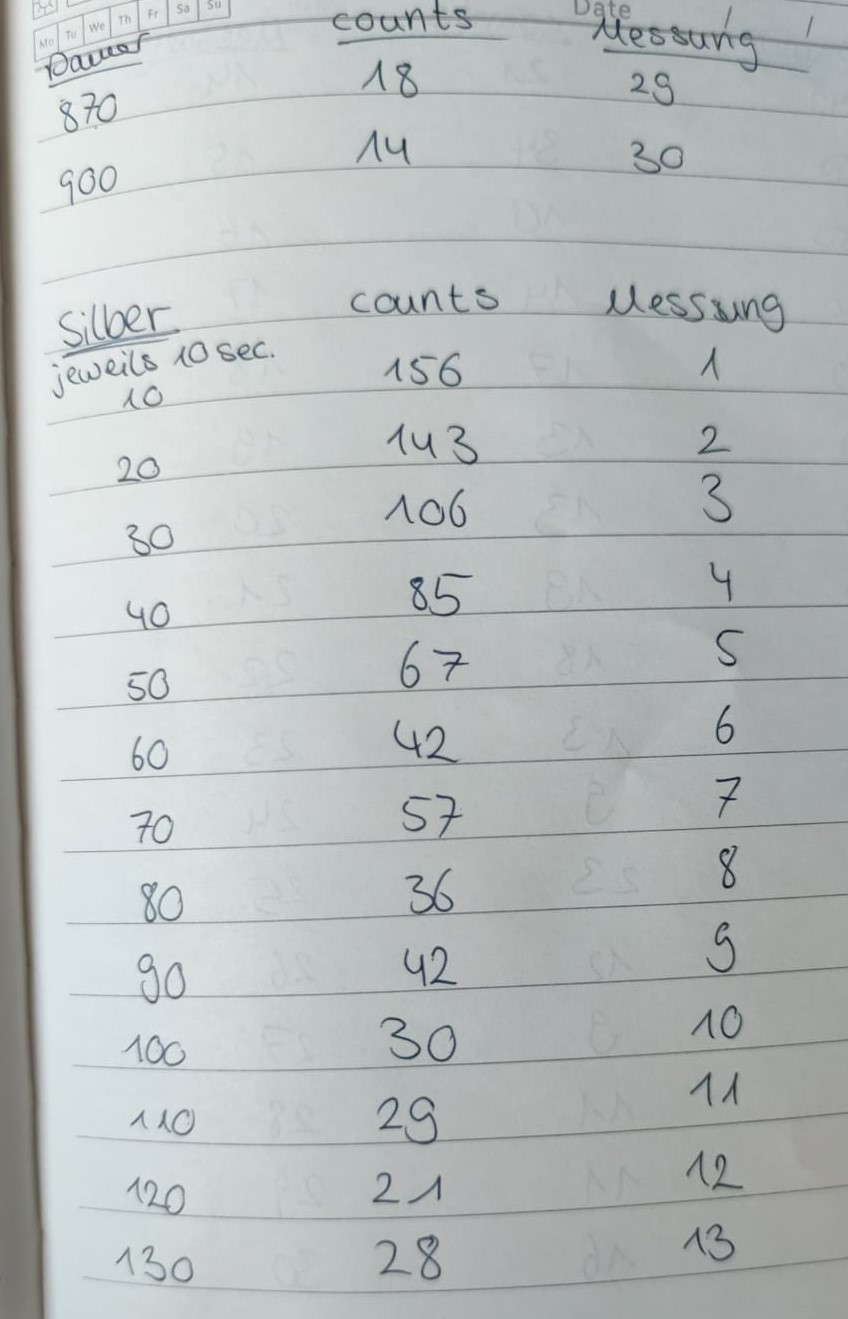 Mo Tu We Th Fr Sa Su
Date / /
Dauer counts Messung
870 18 29
900 14 30
Silber counts Messung
jeweils 10 sec.
10 156 1
20 143 2
30 106 3
40 85 4
50 67 5
60 42 6
70 57 7
80 36 8
90 42 9
100 30 10
110 29 11
120 21 12
130 28 13